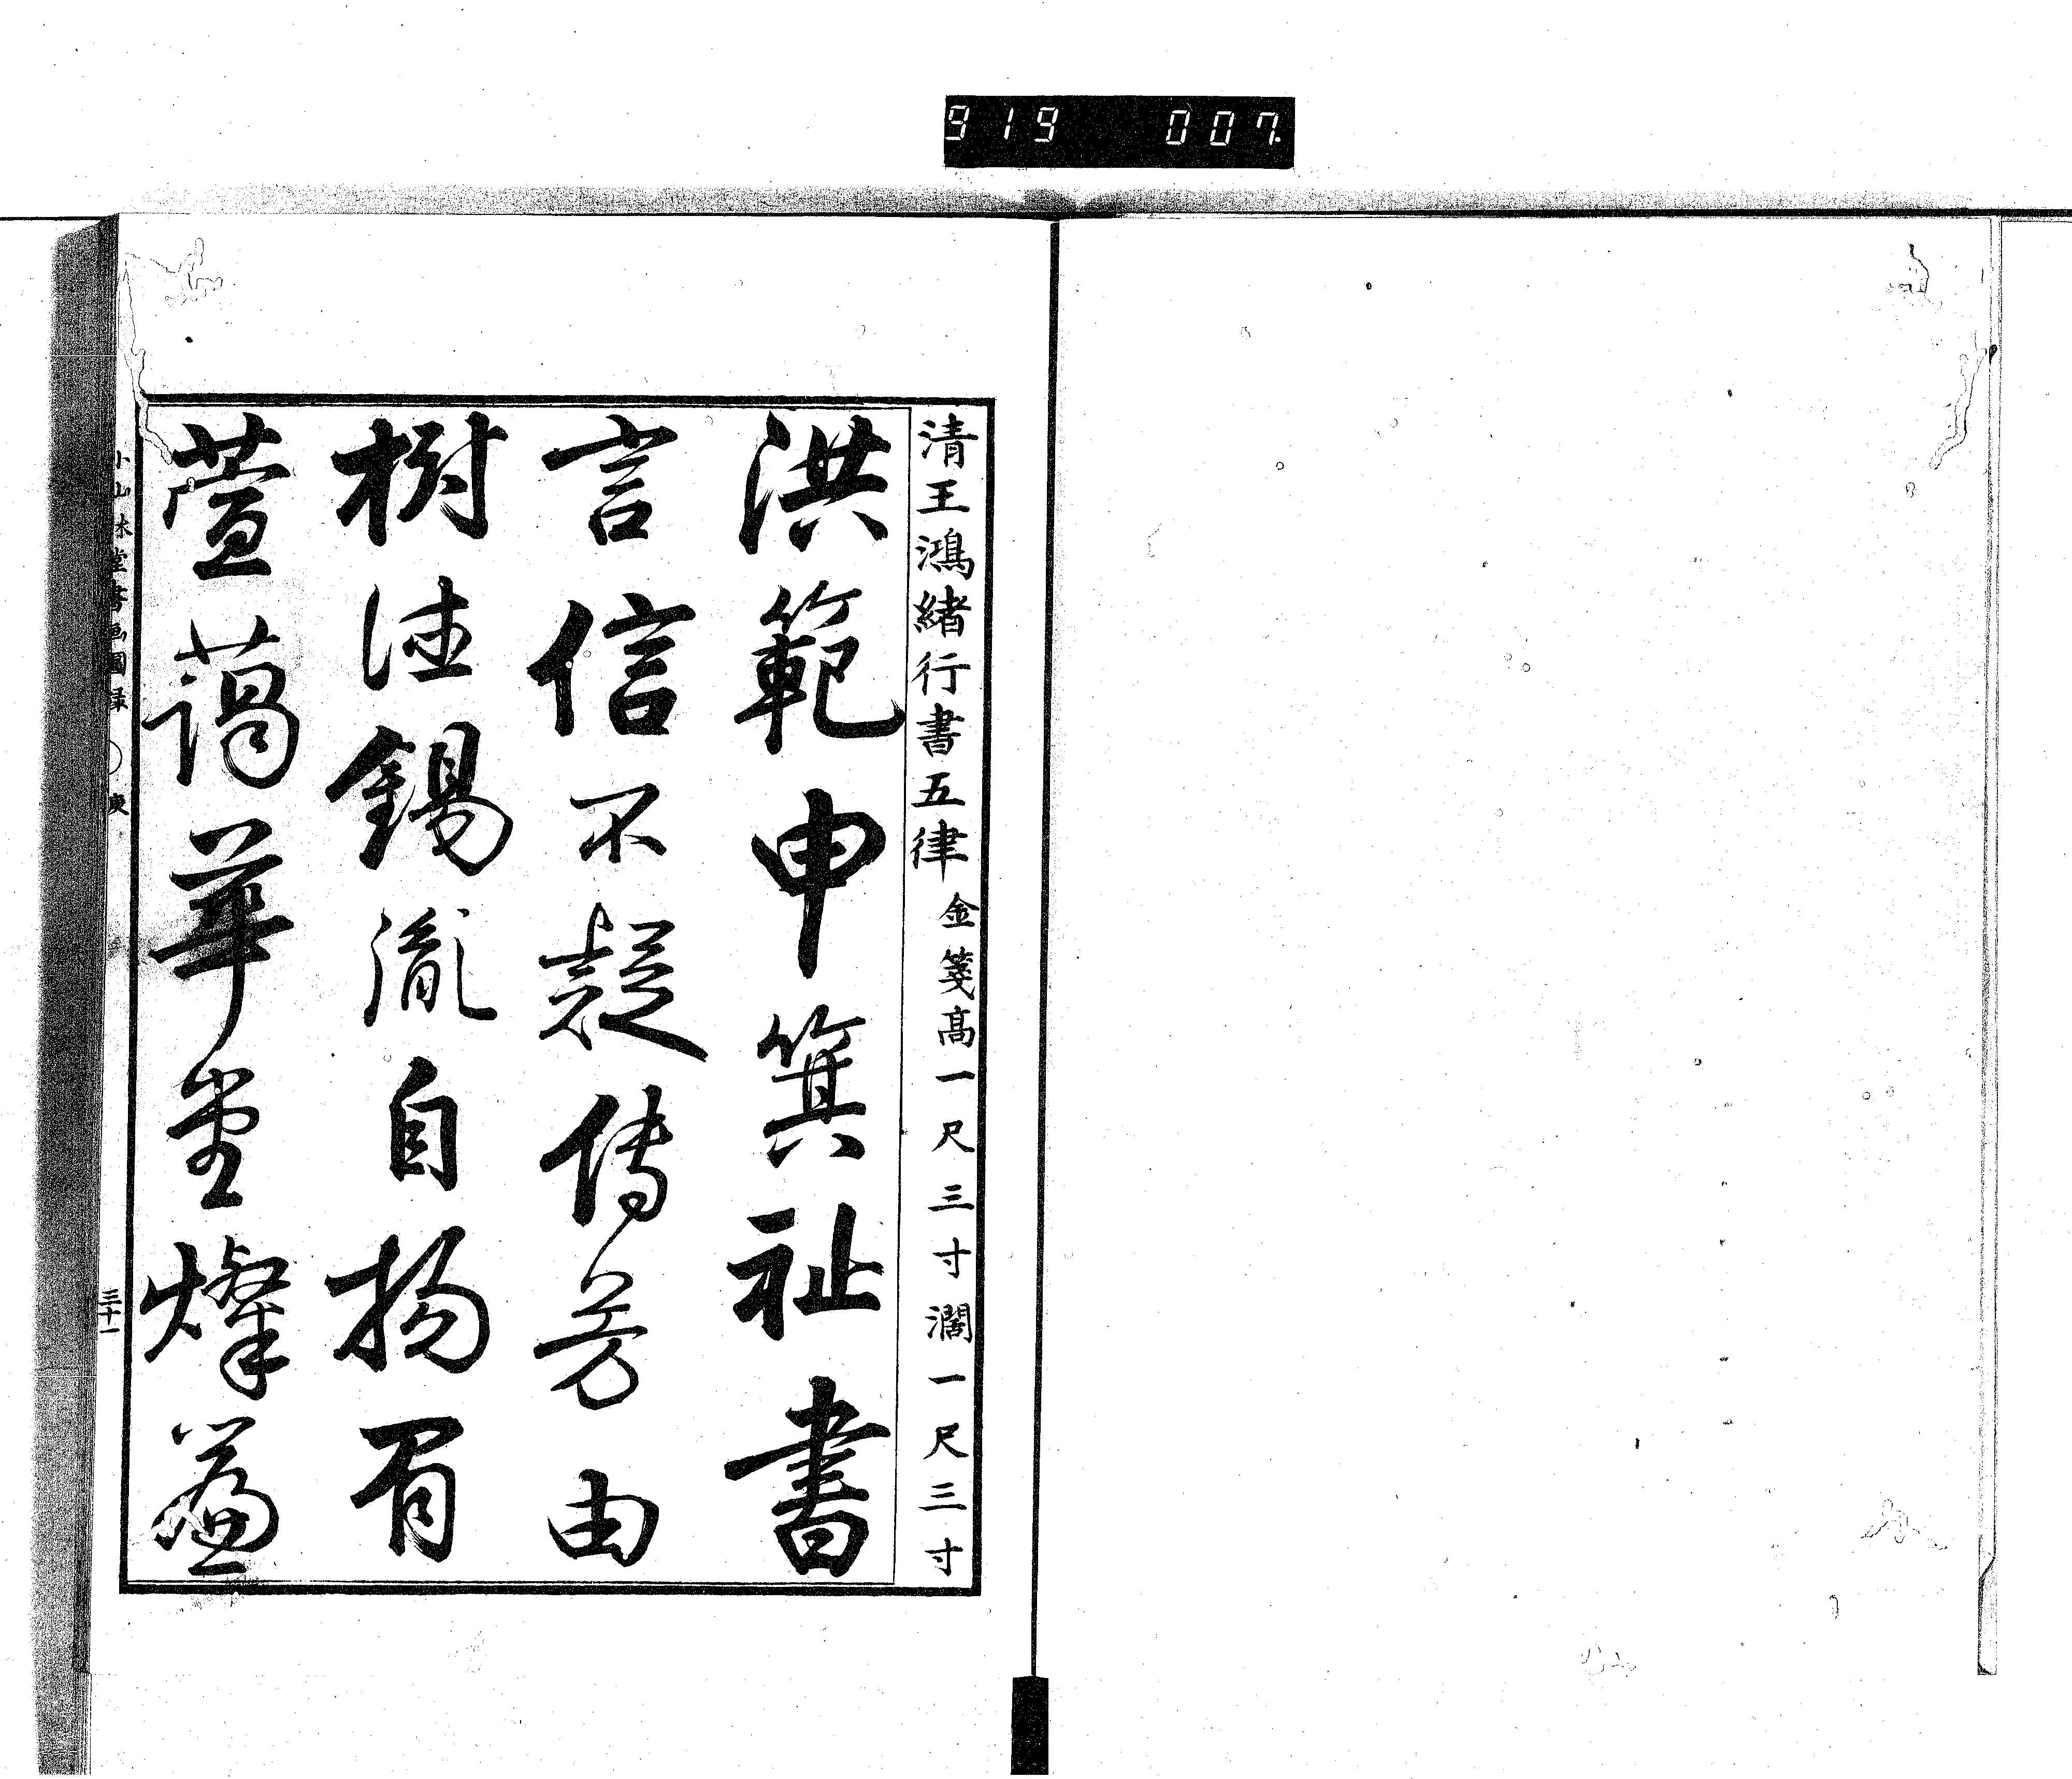 919 007.
清王鴻緒行書五律 金箋高一尺三寸濶一尺三寸
洪範申箕祉書
言信不疑傳芳由
樹德錫胤自揚眉
萱藹華堂燦
小山林堂書画圖録 庚 三十一